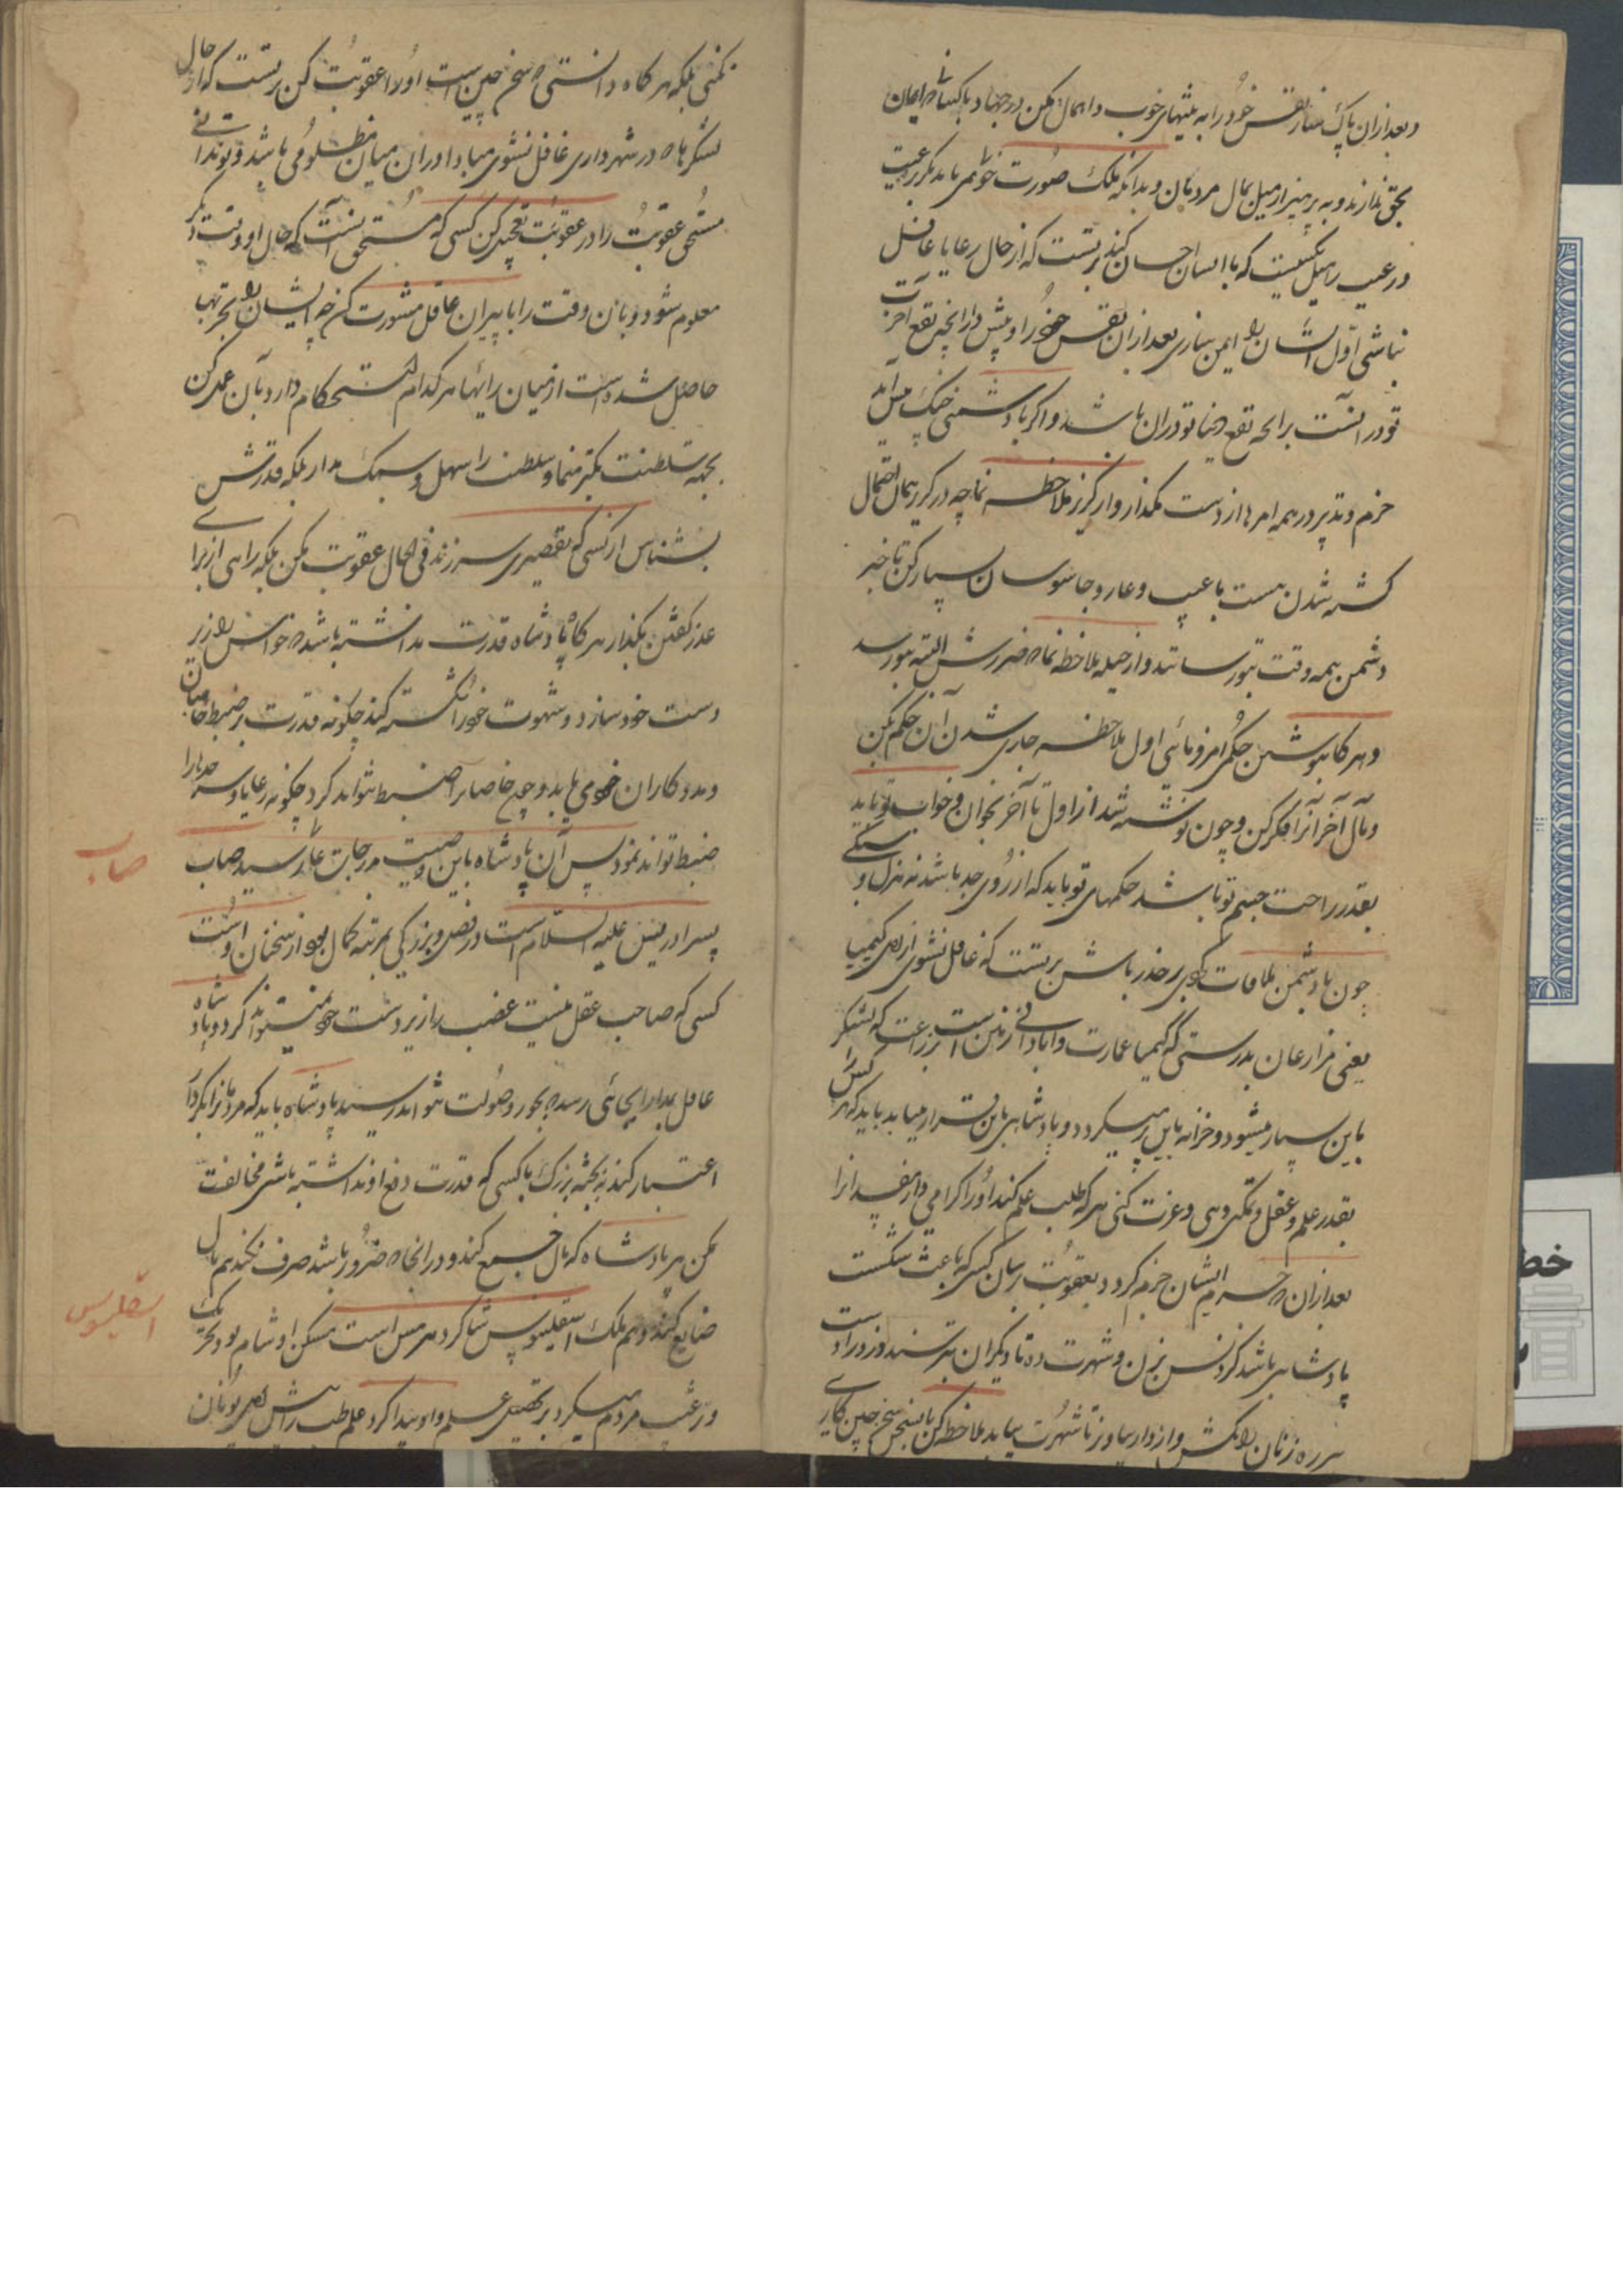 و بعد ازان پاک نفس خود را به نیتهای خوب و اهمال مکن در جهاد با کسانی که ایمان
بحق ندارند و به پرهیز از میل بمال مردمان و بدانکه ملک صورت خواهی یابد مگر برعیت
و رعیت میل بکسیست که با ایشان احسان کند بدرستی که از حال رعایا غافل
نباشی اول ایشان را ایمن سازی بعد ازان نفس خود را و پیش دار آنچه نفع آخرت
تو در آنست بر آنچه نفع دنیا تو دران باشد و اگر با دشمنی جنگ پیش آید
حزم و تدبیر در همه امر ها از دست مگذار و از گریز ملاحظه نما چه در گریز همان احتمال
کشته شدن هست با عیب و عار و جاسوسان بسیار کن تا خبر
دشمن همه وقت بتو رسانند و از حیله ملاحظه نما که ضررش البته بتو رسد
و هر گاه بنوشتن حکمی امر فرمائی اول ملاحظه جاری شدن آن حکم بکن
و مآل آخر آنرا فکر کن و چون نوشته شد از اول تا آخر بخوان و خواب تو باید
بقدر راحت جسم تو باشد حکمهای تو باید که از روی جد باشد نه هزل و سبکی
چون با دشمن ملاقات کنی بر حذر باش بدرستی که غافل نشوی از اهل کیمیا
یعنی مزارعان بدرستی که کیمیا عمارت و آبادانی زمین است بزراعت که لشکر
باین بسیار میشود و خزانه باین پر میگردد و پادشاهی باین قرار میابد باید که هر کس را
بقدر علم و عقل و تمکین دهی و عزت کنی هر که طلب علم کند او را گرامی دار مفسدانرا
بعد ازان که جرم ایشان جزم گردد بعقوبت رسان کسی که باعث شکست
پادشاهی باشد گردنش بزن و شهرت ده تا دیگران بترسند و دزد را دست
سر ره زنان را بکش و از دار بیاویز تا شهرت بیابد ملاحظه کن با سخن چین کاری
نکنی بلکه هر گاه دانستی که سخن چین است او را عقوبت کن بدرستی که از حال
لشکرها که در شهر داری غافل نشوی مبادا دران میان مظلومی باشد و تو ندانی
مستحق عقوبت را در عقوبت تعجیل کن کسی که مستحق آنست که حال او وقت دیگر
معلوم شود و بان وقت را با پیران عاقل مشورت کن که ایشان را تجربها
حاصل شده است از میان رایها هر کدام که استحکام دارد بآن عمل کن
بجهة سلطنت تکبر منما و سلطنت را سهل و سبک مدار بلکه قدرش
بشناس از کسی که تقصیری سر زند فی الحال عقوبت مکن بلکه راهی از برای
عذر گفتن بگذار هر گاه پادشاه قدرت نداشته باشد که حواس را زیر
دست خود سازد و شهوت خود را شکسته کند چگونه قدرت بر ضبط خاصان
و مددکاران خود می یابد و چون خاصانرا ضبط نتواند کرد چگونه رعایا و سرحدها را
ضبط تواند نمود پس آن پادشاه باین وصیت بدرجات عالی رسید صاب
پسر ادریس علیه السلام است در فضل و بزرگی بمرتبه کمال بود از سخنان اوست
کسی که صاحب عقل نیست غضب را زیر دست خود نمیتواند کرد و پادشاه
عاقل بمدارا بجائی رسد که بجور و صولت نتواند رسید پادشاه باید که مردمانرا بکردار
اعتبار کند نه بجثه بزرگ با کسی که قدرت دفع او نداشته باشی مخالفت
مکن هر پادشاه که مال جمع کند و در آنجا که ضرور باشد صرف نکند هم مال
ضایع کند و هم ملک اسقلیبوس شاگرد هرمس است مسکن او شام بود تحریک
و رغبت مردم میکرد بر تحصیل علم و او پیدا کرد علم طب را پیش اهل یونان
صاب
اسقلیبوس
خط